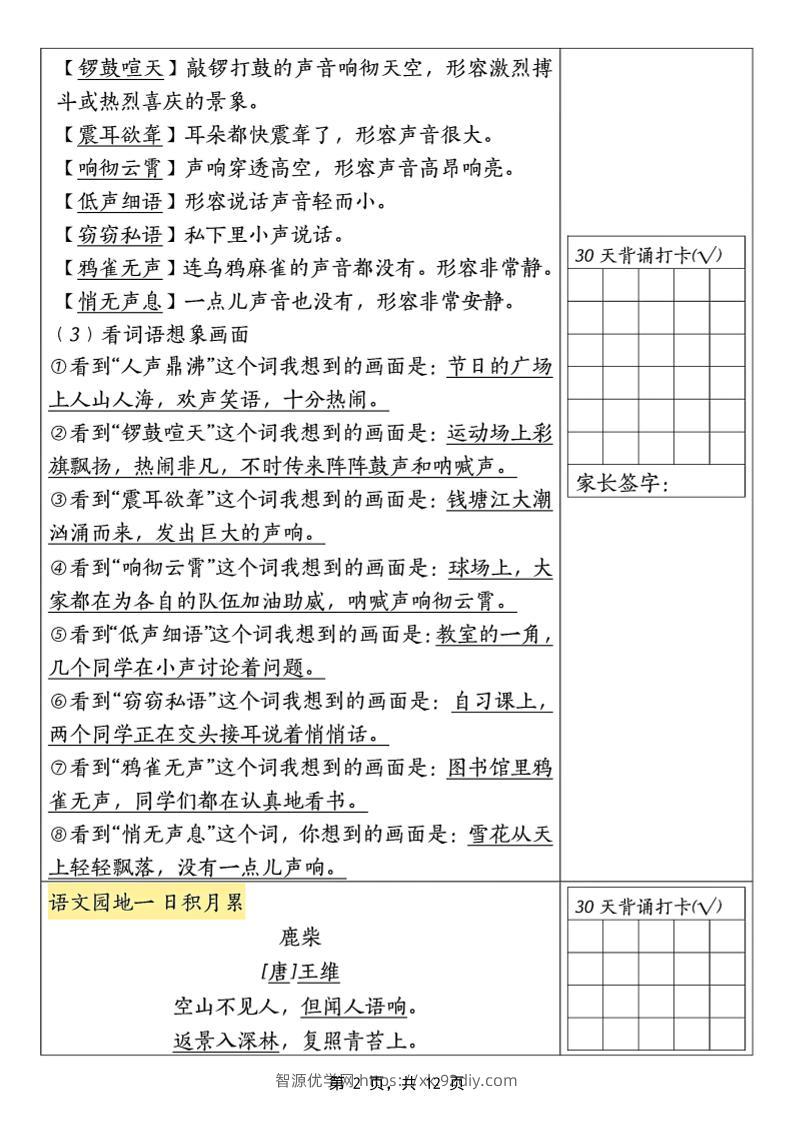 【锣鼓喧天】敲锣打鼓的声音响彻天空，形容激烈搏
斗或热烈喜庆的景象。
【震耳欲聋】耳朵都快震聋了，形容声音很大。
【响彻云霄】声响穿透高空，形容声音高昂响亮。
【低声细语】形容说话声音轻而小。
【窃窃私语】私下里小声说话。
【鸦雀无声】连乌鸦麻雀的声音都没有。形容非常静。
【悄无声息】一点儿声音也没有，形容非常安静。
（3）看词语想象画面
①看到“人声鼎沸”这个词我想到的画面是：节日的广场
上人山人海，欢声笑语，十分热闹。
②看到“锣鼓喧天”这个词我想到的画面是：运动场上彩
旗飘扬，热闹非凡，不时传来阵阵鼓声和呐喊声。
③看到“震耳欲聋”这个词我想到的画面是：钱塘江大潮
汹涌而来，发出巨大的声响。
④看到“响彻云霄”这个词我想到的画面是：球场上，大
家都在为各自的队伍加油助威，呐喊声响彻云霄。
⑤看到“低声细语”这个词我想到的画面是：教室的一角，
几个同学在小声讨论着问题。
⑥看到“窃窃私语”这个词我想到的画面是：自习课上，
两个同学正在交头接耳说着悄悄话。
⑦看到“鸦雀无声”这个词我想到的画面是：图书馆里鸦
雀无声，同学们都在认真地看书。
⑧看到“悄无声息”这个词，你想到的画面是：雪花从天
上轻轻飘落，没有一点儿声响。
30 天背诵打卡(√)
家长签字：
语文园地一 日积月累
鹿柴
[唐]王维
空山不见人，但闻人语响。
返景入深林，复照青苔上。
30 天背诵打卡(√)
第 2 页，共 12 页
智源优学网 https://xk92diy.com